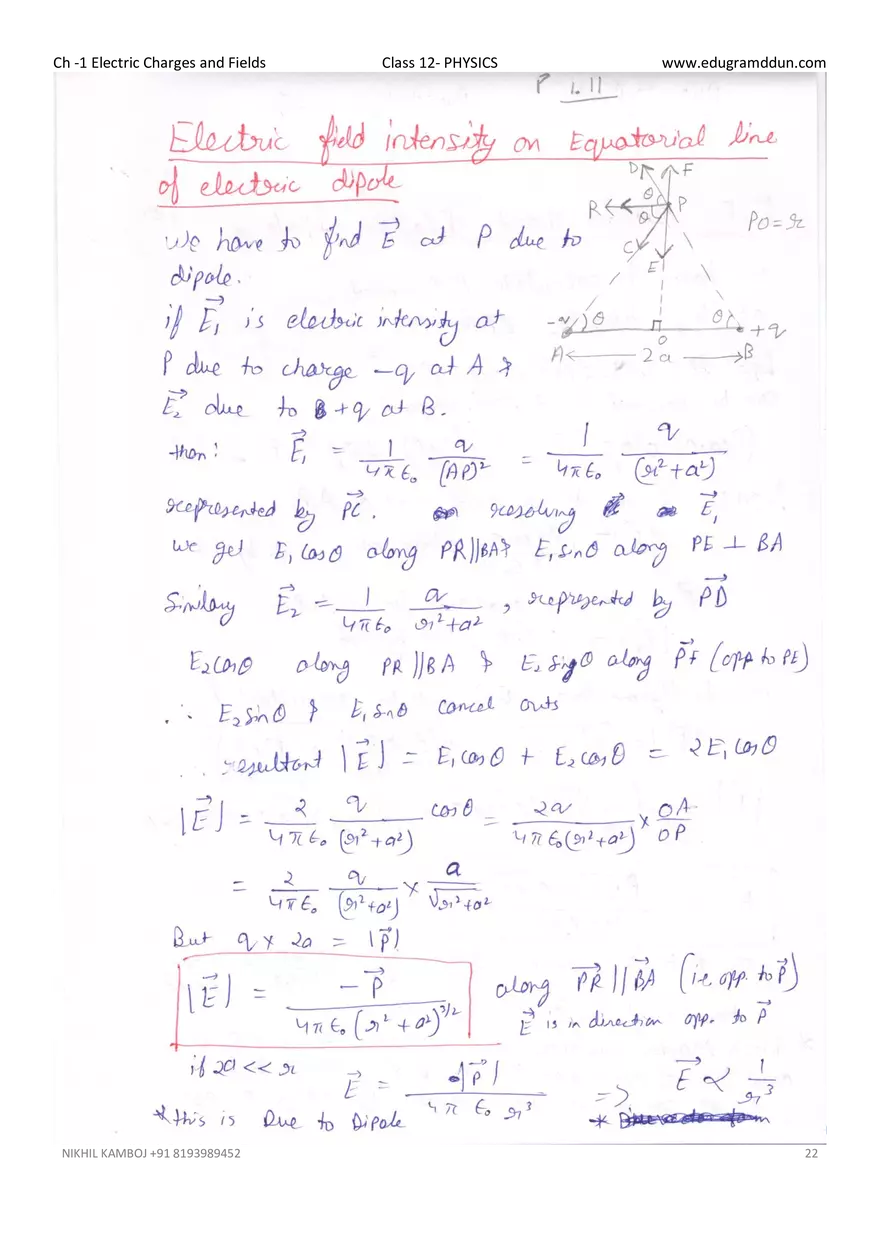 Ch -1 Electric Charges and Fields Class 12- PHYSICS www.edugramddun.com
P 1.11
Electric field intensity on Equatorial line
of electric dipole
D F
R θ P
θ
PO = r
C
E
-q θ θ +q
O
A 2a B
We have to find E⃗ at P due to
dipole.
if E⃗₁ is electric intensity at
P due to charge -q at A &
E⃗₂ due to +q at B.
then: E⃗₁ = 1/4πε₀ q/(AP)² = 1/4πε₀ q/(r²+a²)
represented by PC⃗. resolving E⃗₁
We get E₁ cosθ along PR||BA & E₁ sinθ along PE ⊥ BA
Similary E⃗₂ = 1/4πε₀ q/r²+a² , represented by PD⃗
E₂cosθ along PR ||BA & E₂ sinθ along PF⃗ (opp to PE)
∴ E₂sinθ & E₁sinθ cancel outs
∴ resultant |E⃗| = E₁cosθ + E₂cosθ = 2E₁cosθ
|E⃗| = 2/4πε₀ q/(r²+a²) cosθ = 2q/4πε₀(r²+a²) × OA/OP
= 2/4πε₀ q/(r²+a²) × a/√r²+a²
But q × 2a = |P⃗|
|E⃗| = -P⃗/4πε₀(r²+a²)^3/2 along PR⃗||BA⃗ (i.e opp. to P⃗)
E⃗ is in direction opp. to P⃗
if 2a << r
E⃗ = |P⃗|/4πε₀ r³ => E⃗ ∝ 1/r³
*this is Due to Dipole *
NIKHIL KAMBOJ +91 8193989452 22